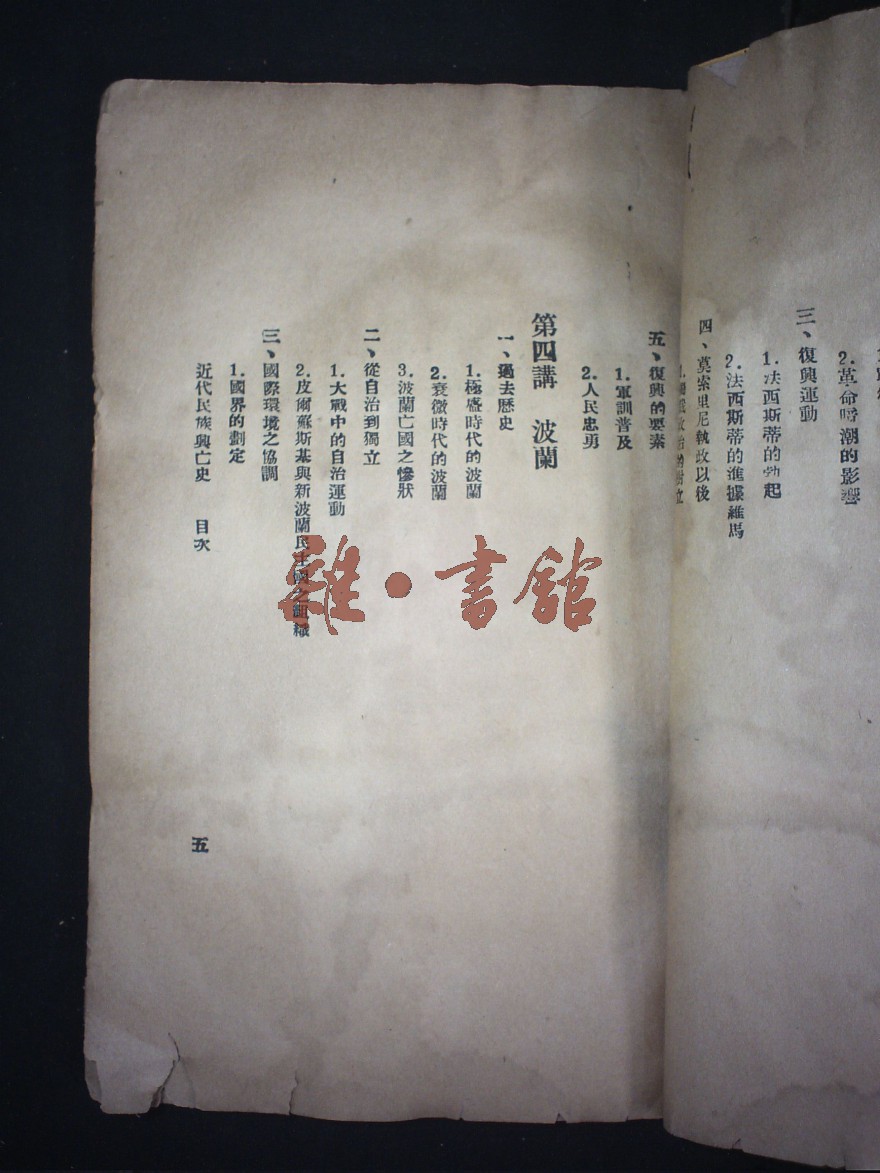 2.革命暗潮的影響
三、復興運動
1.法西斯蒂的勃起
2.法西斯蒂的進據羅馬
四、莫索里尼執政以後
政治的對立
五、復興的要素
1.軍訓普及
2.人民忠勇
第四講 波蘭
一、過去歷史
1.極盛時代的波蘭
2.衰微時代的波蘭
3.波蘭亡國之慘狀
二、從自治到獨立
1.大戰中的自治運動
2.皮爾蘇斯基與新波蘭民主國之組織
三、國際環境之協調
1.國界的劃定
近代民族興亡史 目次
五
雜·書館